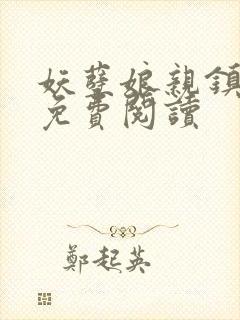 妖孽娘親鎮
免費閱讀
鄭起英